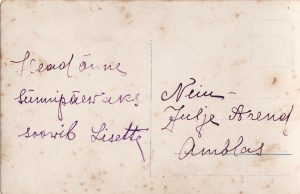 Head õnne
Sünnipäevaks
soovib Lisette
Neiu
Julje Arend
Amblas